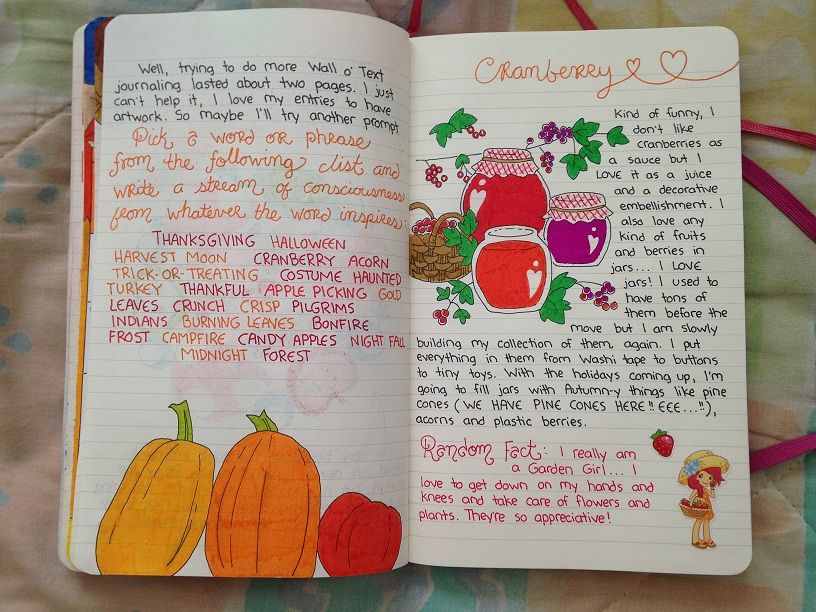 Well, trying to do more Wall o' Text
journaling lasted about two pages. I just
can't help it, I love my entries to have
artwork. So maybe I'll try another prompt
Pick a word or phrase
from the following list and
write a stream of consciousness
from whatever the word inspires:
THANKSGIVING HALLOWEEN
HARVEST MOON CRANBERRY ACORN
TRICK-OR-TREATING COSTUME HAUNTED
TURKEY THANKFUL APPLE PICKING GOLD
LEAVES CRUNCH CRISP PILGRIMS
INDIANS BURNING LEAVES BONFIRE
FROST CAMPFIRE CANDY APPLES NIGHT FALL
MIDNIGHT FOREST
Cranberry
Kind of funny, I
don't like
cranberries as
a sauce but I
LOVE it as a juice
and a decorative
embellishment. I
also love any
kind of fruits
and berries in
jars... I LOVE
jars! I used to
have tons of
them before the
move but I am slowly
building my collection of them again. I put
everything in them from Washi tape to buttons
to tiny toys. With the holidays coming up, I'm
going to fill jars with Autumn-y things like pine
cones (WE HAVE PINE CONES HERE!! EEE...!!),
acorns and plastic berries.
Random Fact: I really am
a Garden Girl... I
love to get down on my hands and
knees and take care of flowers and
plants. They're so appreciative!